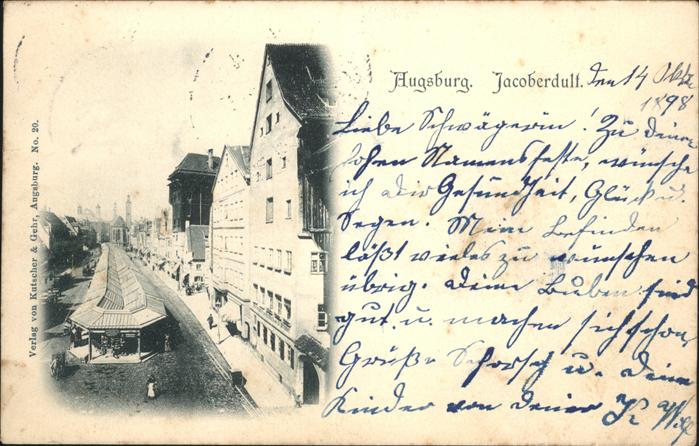 Augsburg. Jacoberdult.
Den 14 Okt.
1898
Liebe Schwägerin! Zu deinem
hohen Namensfeste, wünsche
ich dir Gesundheit, Glück u.
Segen. Mein befinden
läßt vieles zu wünschen
übrig. Deine Buben sind
gut u. machen sich schon.
Grüße Schorsch u. deine
Kinder von deiner
Verlag von Kutscher & Gehr, Augsburg. No. 20.